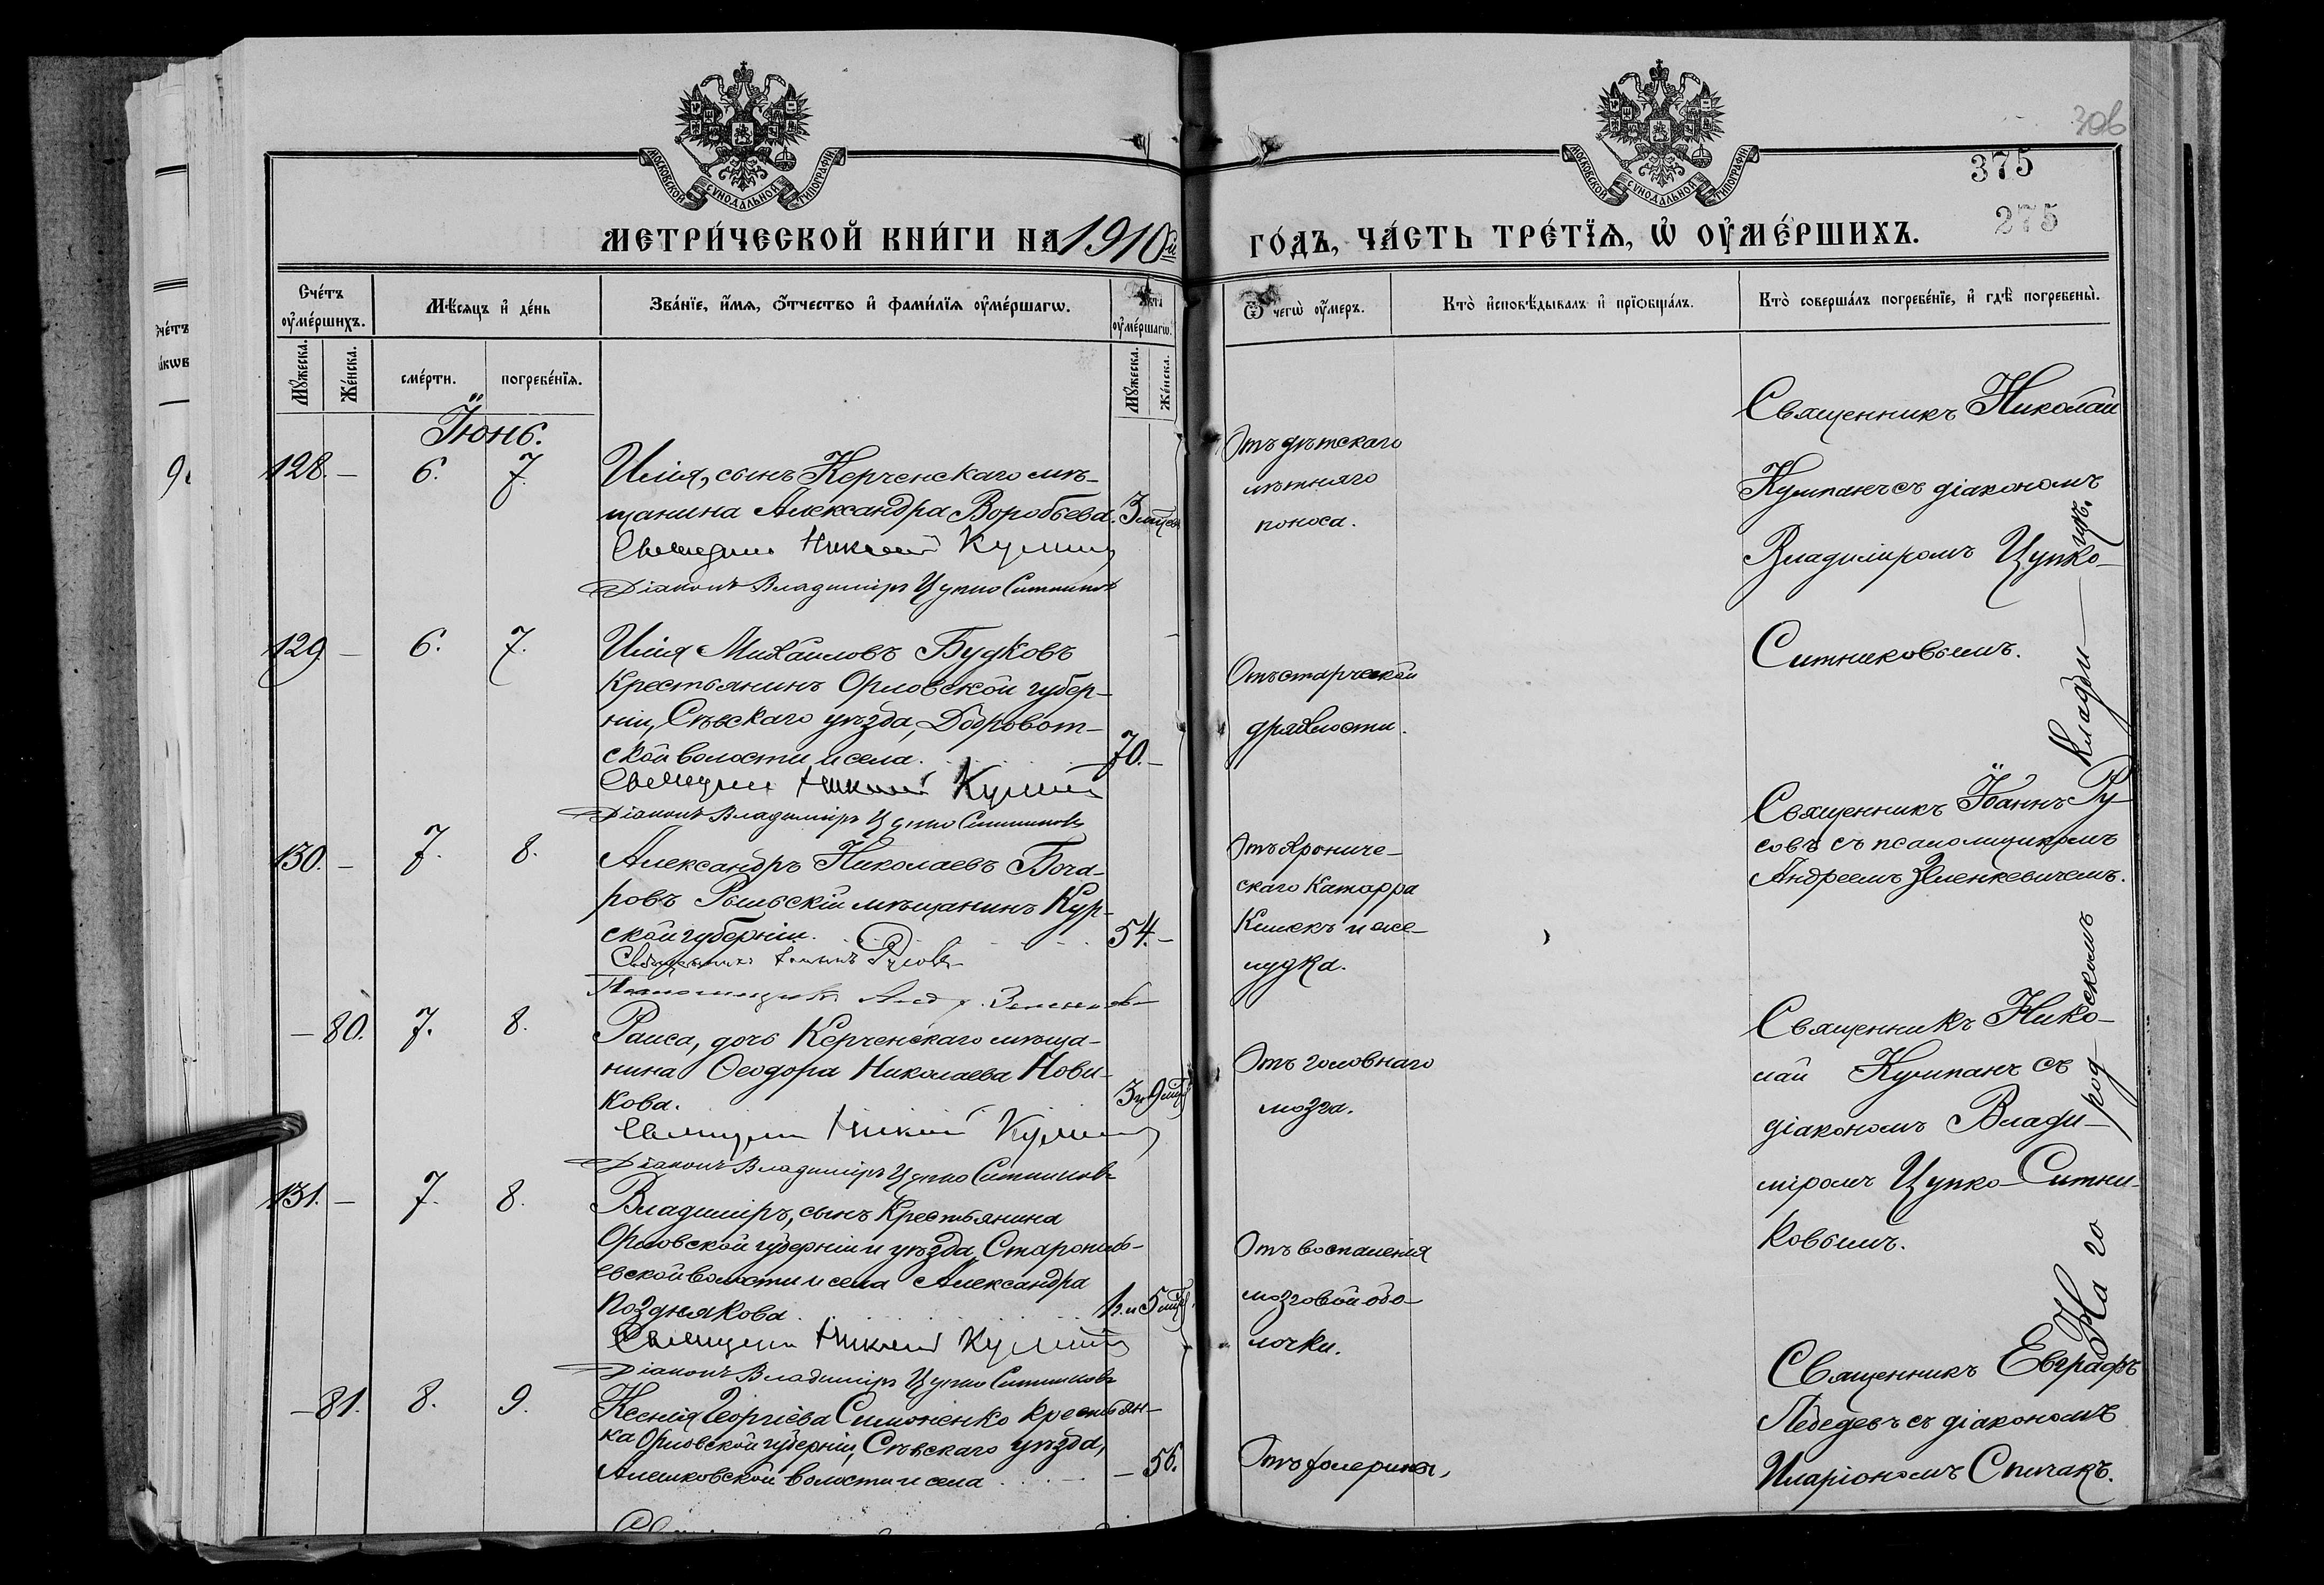 306
375
275
МОСКОВСКОЙ СѴНОДАЛЬНОЙ ТИПОГРАФІИ
МОСКОВСКОЙ СѴНОДАЛЬНОЙ ТИПОГРАФІИ
МЕТРИ́ЧЕСКОЙ КНИ́ГИ НА 1910й
ГО́ДЪ, ЧА́СТЬ ТРЕ́ТЇѦ, Ѡ ОУМЕ́РШИХЪ.
Сче́тъ оумéршихъ.
Мѣ́сяцъ и де́нь
Зва́нїе, и́мя, о́тчество и фами́лїя оумéршагѡ.
оумéршагѡ.
Ѿ чегѡ̀ оу́меръ.
Кто̀ исповѣ́дывалъ и прїѡбща́лъ.
Кто̀ соверша́лъ погребе́нїе, и гдѣ̀ погребены̀.
Мꙋ́жеска.
Же́нска.
сме́рти.
погребе́нїя.
Мꙋ́жеска.
Же́нска.
Іюнь.
128. — 6. 7.
Илія, сынъ Керченскаго мѣ-
щанина Александра Воробьева. 3 мѣс.
Священникъ Николай Кумпанъ
Діаконъ Владиміръ Цупко Ситниковъ
Отъ дѣтскаго
лѣтняго
поноса.
Священникъ Николай
Кумпанъ съ діакономъ
Владиміромъ Цупко-
Ситниковымъ.
129. — 6. 7.
Илія Михаиловъ Будковъ
крестьянинъ Орловской губер-
ніи, Сѣвскаго уѣзда, Доброво́т-
ской волости и села. 70. —
Священникъ Николай Кумпанъ
Діаконъ Владиміръ Цупко Ситниковъ
Отъ старческой
дряхлости.
130. — 7. 8.
Александръ Николаевъ Боча-
ровъ Рыльскій мѣщанинъ Кур-
ской губерніи. 54. —
Священникъ Іоаннъ Русовъ
Псаломщикъ Андр. Зеленкев
Отъ хрониче-
скаго катарра
кишекъ и же-
лудка.
Священникъ Іоаннъ Ру-
совъ съ псаломщикомъ
Андреемъ Зеленкевичемъ.
— 80. 7. 8.
Раиса, дочь Керченскаго мѣща-
нина Ѳеодора Николаева Нови-
кова. 3 г. 9 мѣс
Священникъ Николай Кумпанъ
Діаконъ Владиміръ Цупко Ситниковъ
Отъ головнаго
мозга.
Священникъ Нико-
лай Кумпанъ съ
діакономъ Влади-
міромъ Цупко-Ситни-
ковымъ.
131. — 7. 8.
Владиміръ, сынъ крестьянина
Орловской губерніи и уѣзда,
евской волости и села Александра
Позднякова. 1 г. и 5 мѣс.
Священникъ Николай Кумпанъ
Діаконъ Владиміръ Цупко Ситниковъ
Отъ воспаленія
мозговой обо-
лочки.
— 81. 8. 9.
Ксенія Георгіева Симоненко крестьян-
ка Орловской губерніи, Сѣвскаго уѣзда,
Алешковской волости и села — 56.
Отъ холерины.
Священникъ Евграфъ
Лебедевъ съ діакономъ
Иларіономъ Спичакъ.
На го родскомъ кладби- щѣ.